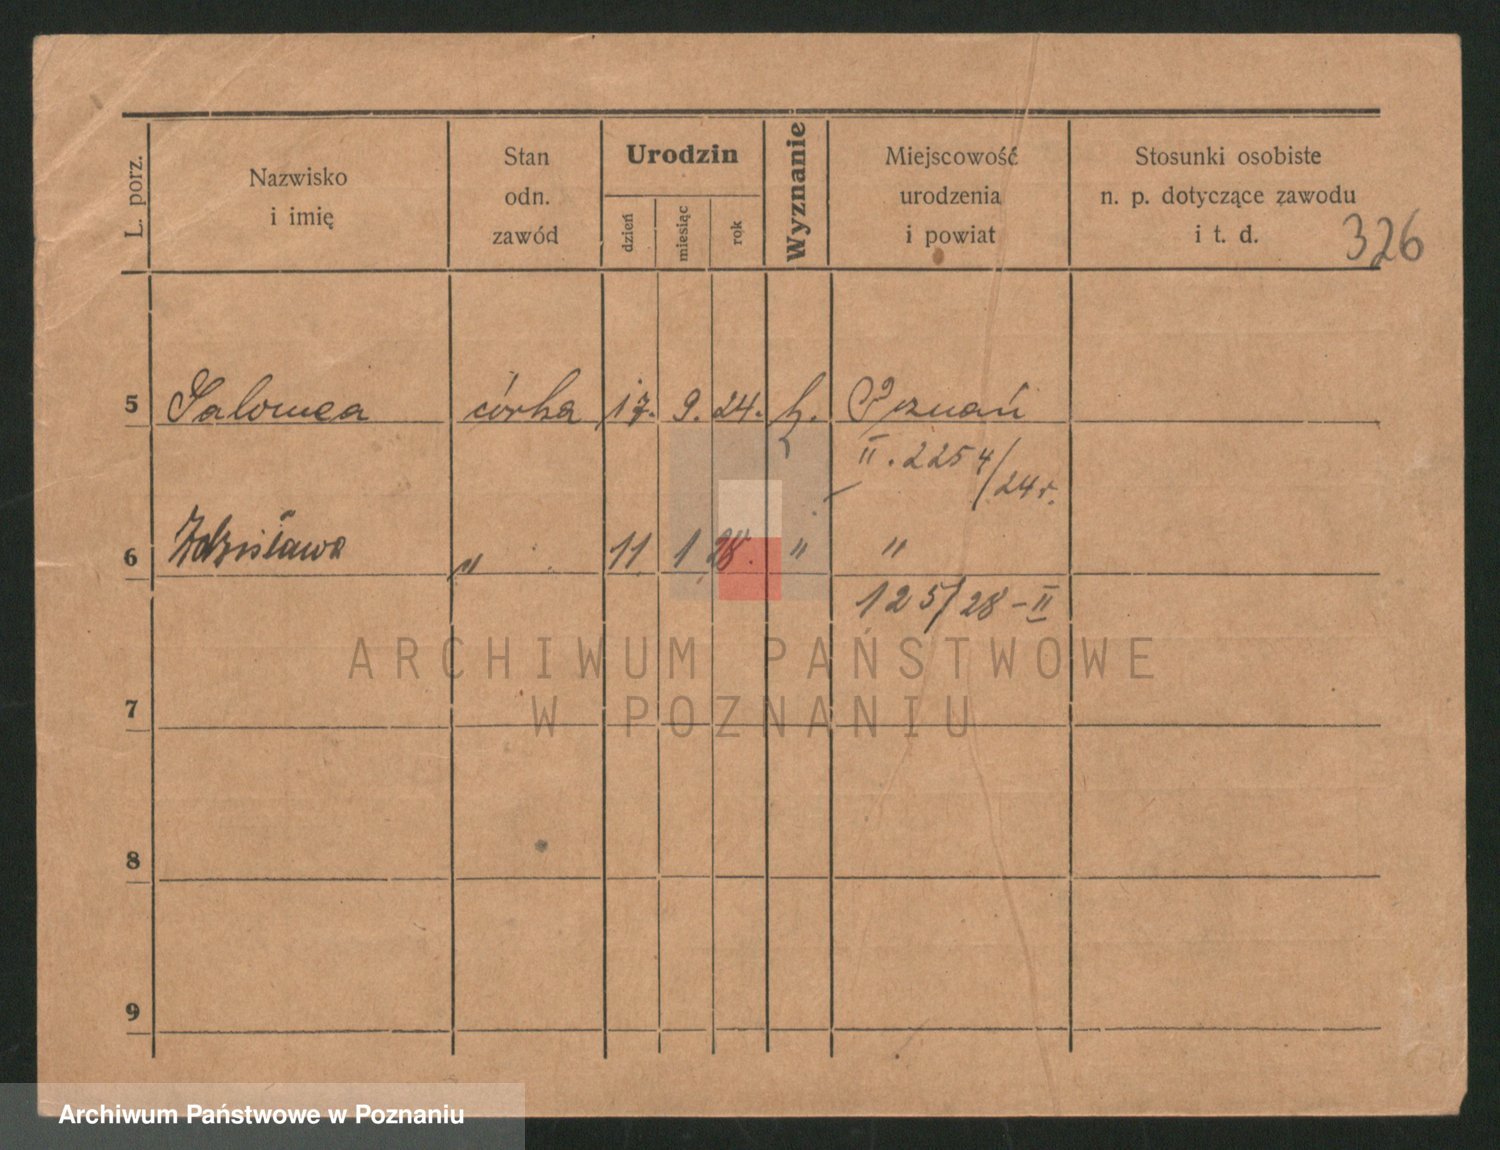 L. porz.
Nazwisko
i imię
Stan
odn.
zawód
Urodzin
dzień
miesiąc
rok
Wyznanie
Miejscowość
urodzenia
i powiat
Stosunki osobiste
n. p. dotyczące zawodu
i t. d.
326
5 Salomea córka 17. 9. 24. k. Poznań
II. 2254/24r.
6 Zdzisława " 11 1 28. " "
125/28-II
ARCHIWUM PAŃSTWOWE
W POZNANIU
7
8
9
Archiwum Państwowe w Poznaniu